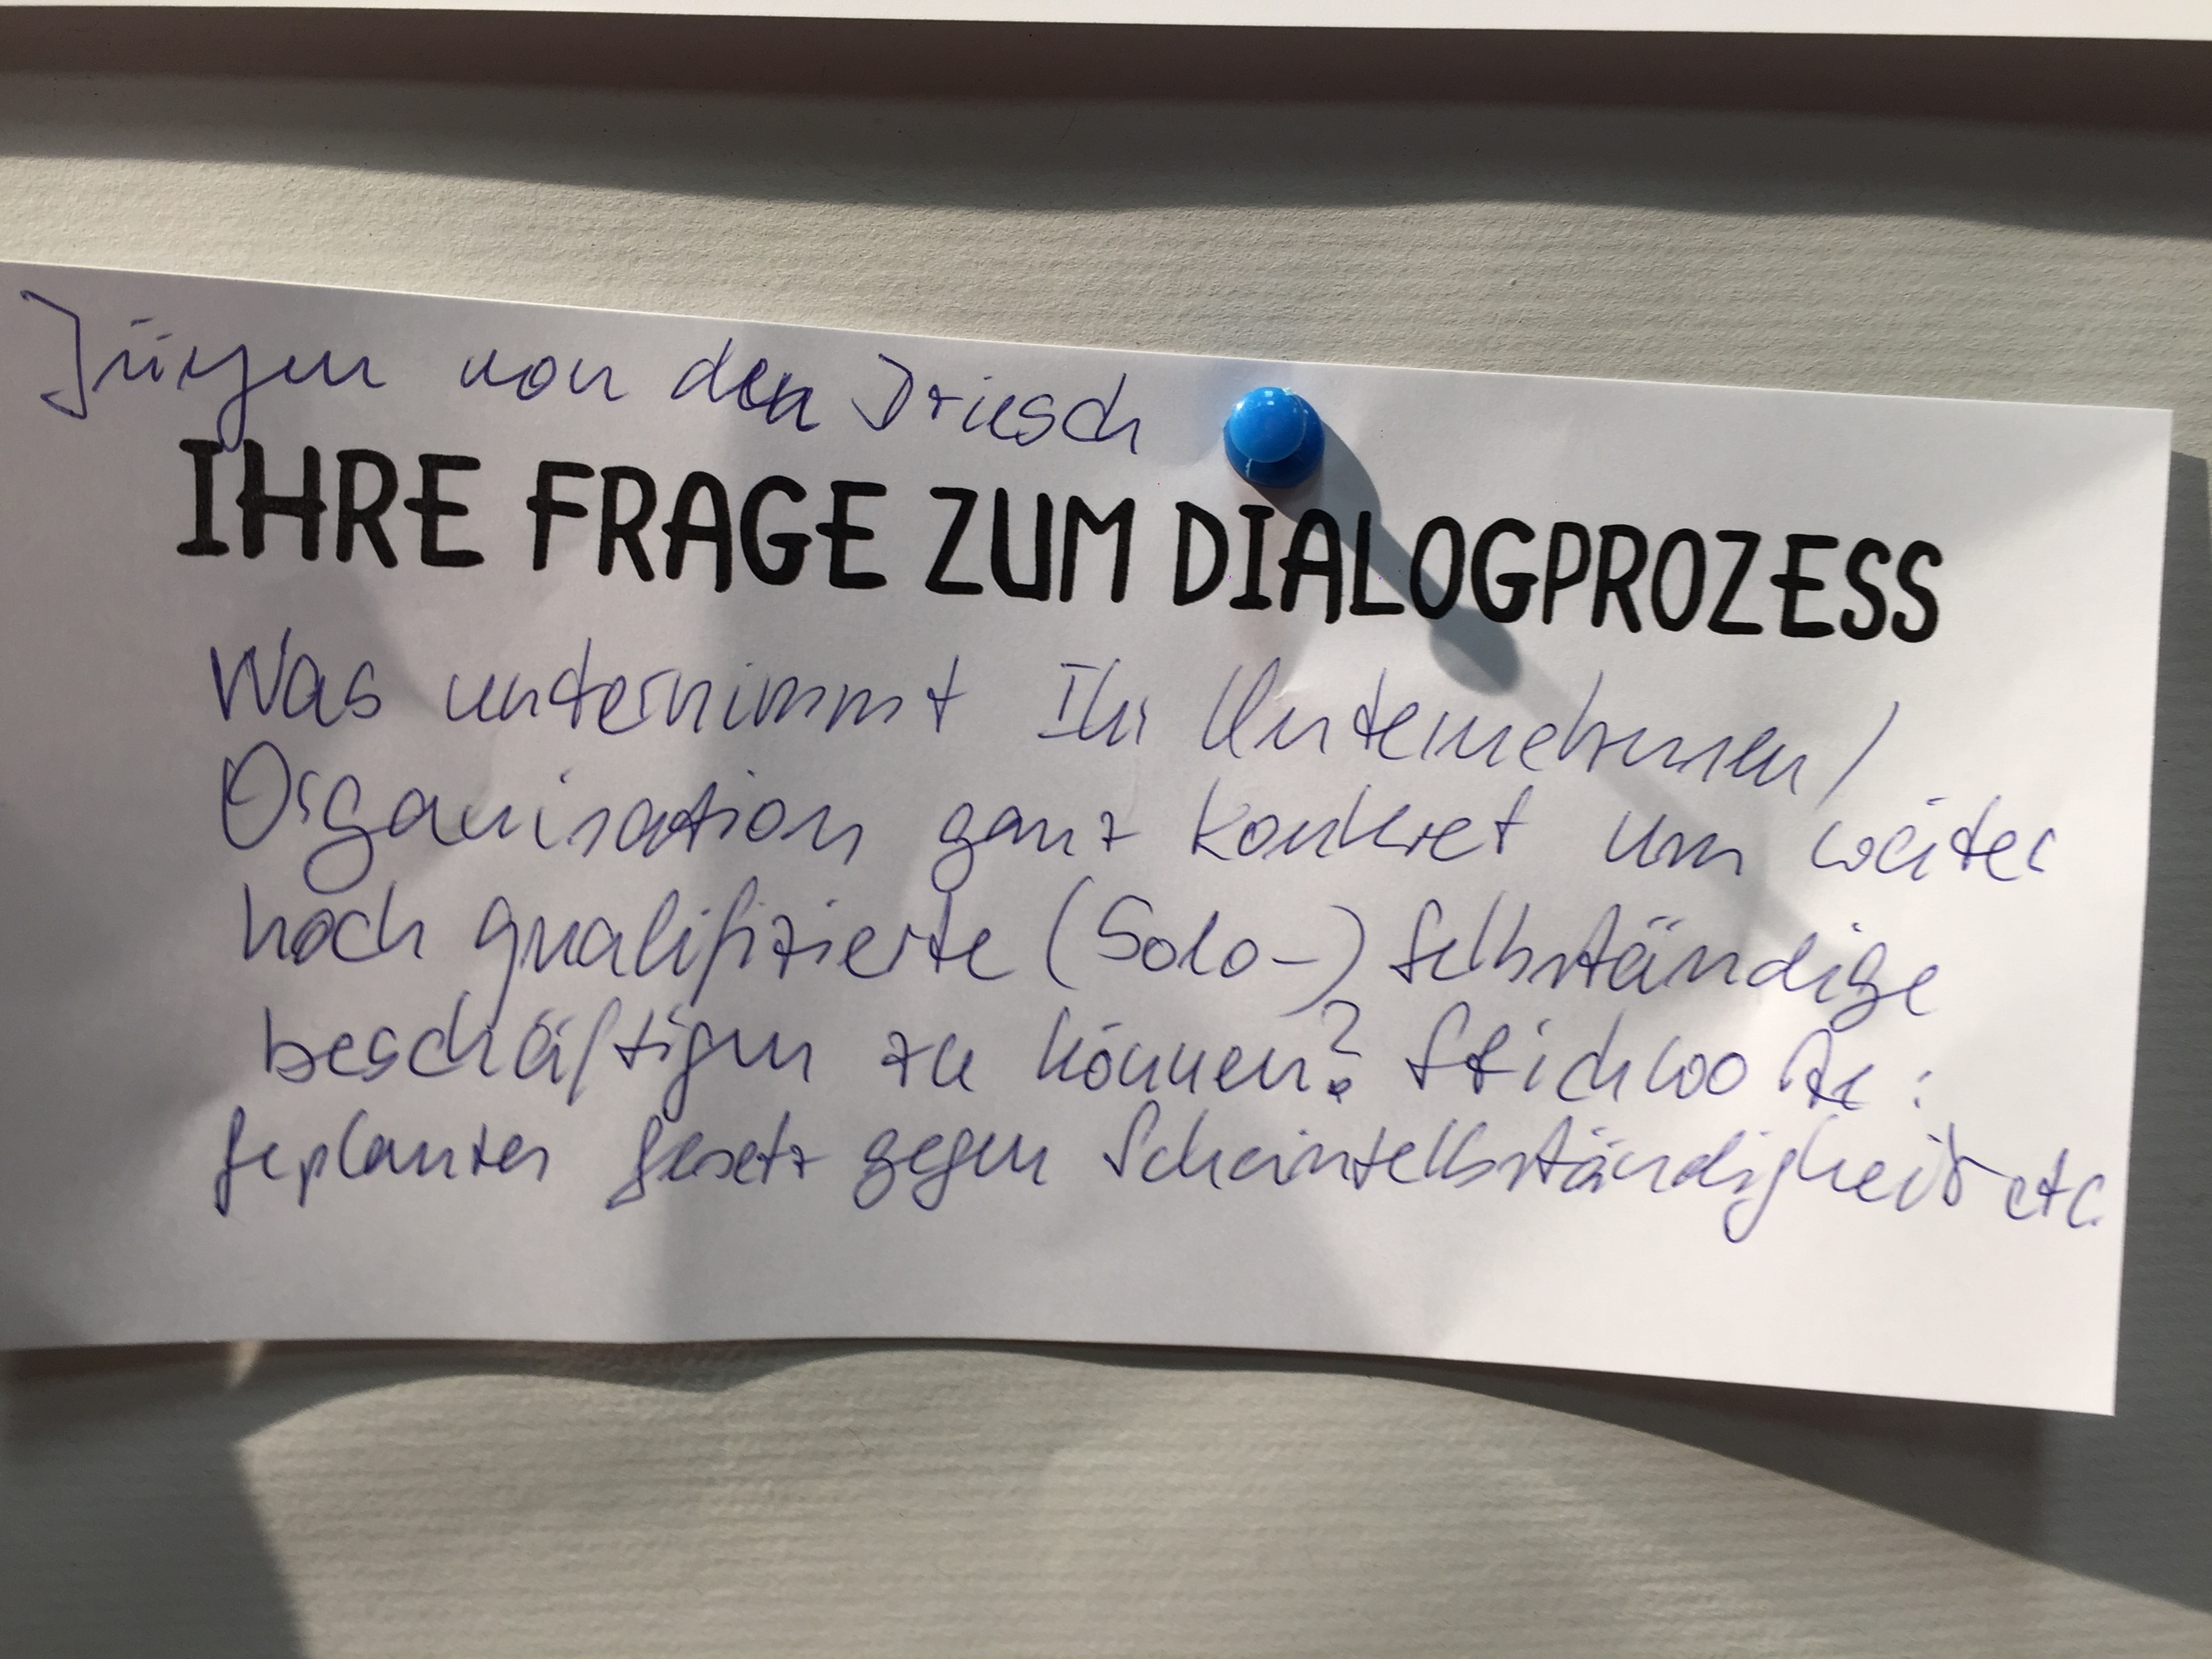 Jürgen von den Driesch
IHRE FRAGE ZUM DIALOGPROZESS
Was unternimmt Ihr Unternehmen/
Organisation ganz konkret um weiter
hoch qualifizierte (Solo-) Selbständige
beschäftigen zu können? Stichworte:
geplantes Gesetz gegen Scheinselbständigkeit etc.